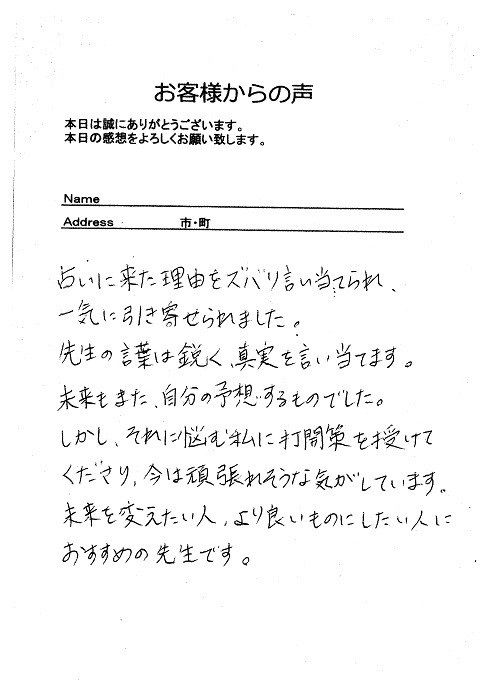 お客様からの声
本日は誠にありがとうございます。
本日の感想をよろしくお願い致します。
Name
Address 市・町
占いに来た理由をズバリ言い当てられ、
一気に引き寄せられました。
先生の言葉は鋭く、真実を言い当てます。
未来もまた、自分の予想するものでした。
しかし、それに悩む私に打開策を授けて
くださり、今は頑張れそうな気がしています。
未来を変えたい人、より良いものにしたい人に
おすすめの先生です。